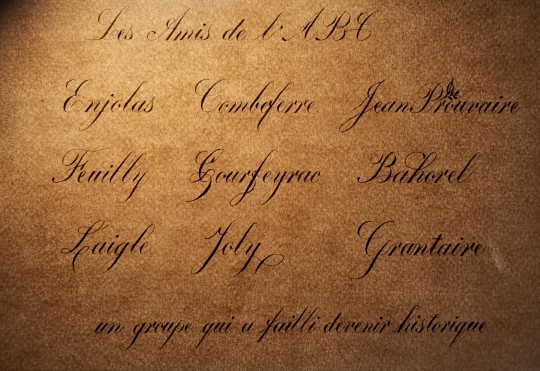 Les Amis de l'ABC
Enjolas Combeferre Jean Prouvaire
Feuilly Courfeyrac Bahorel
Laigle Joly Grantaire
un groupe qui a failli devenir historique